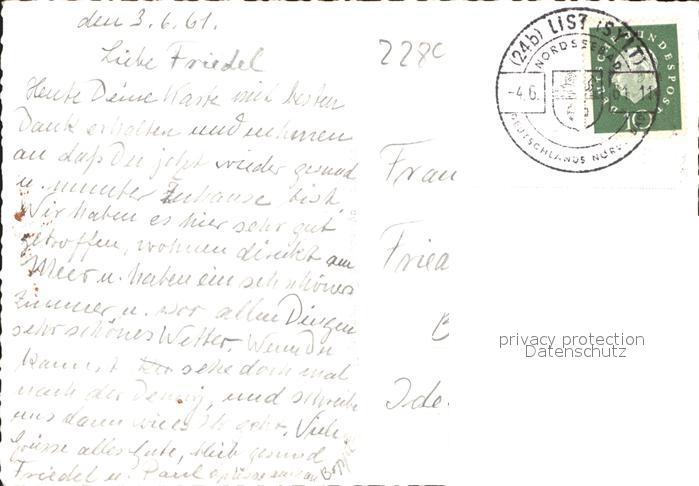 den 3.6.61.
Liebe Friedel
Heute Deine Karte mit besten
Dank erhalten und nehmen
an daß Du jetzt wieder gesund
u. munter Zuhause bist.
Wir haben es hier sehr gut
getroffen, wohnen direkt am
Meer u. haben ein schönes
Zimmer u. vor allen Dingen
sehr schönes Wetter. Wenn Du
kannst sehe doch mal
nach der und schreibe
uns dann wie es ihr geht. Viele
Grüsse alles Gute, bleib gesund
Friedel u. Paul
2280
Frau
Fried
B
Ide
(24b) LIST (SYLT)
NORDSEEBAD
-4.6.61-11
DEUTSCHLANDS NÖRD
DEUTSCHE BUNDESPOST
10
privacy protection
Datenschutz